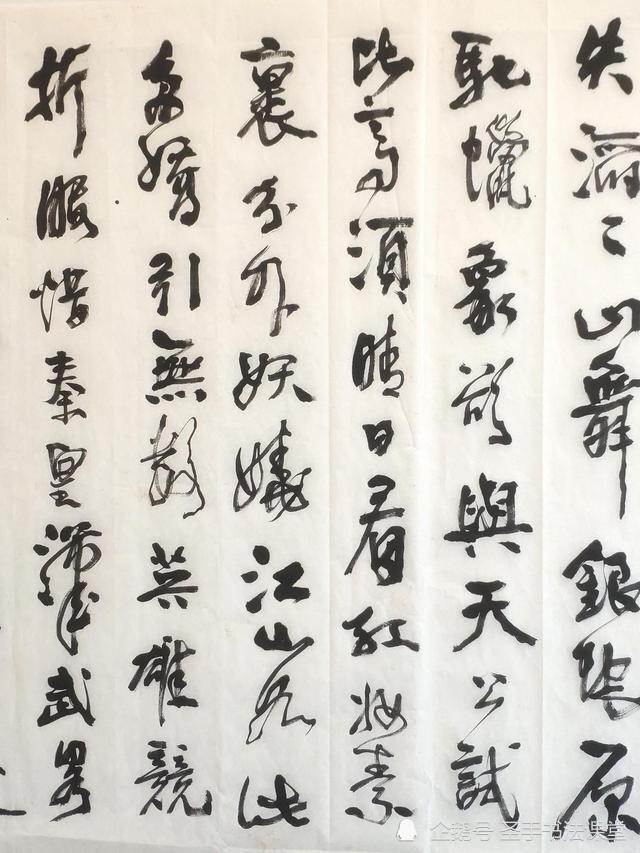 失滔〻山舞銀蛇原
馳蠟象欲與天公試
比高須晴日看紅妝素
裹分外妖嬈江山如此
多嬌引無數英雄競
折腰惜秦皇漢武畧
企鹅号 圣手书法课堂